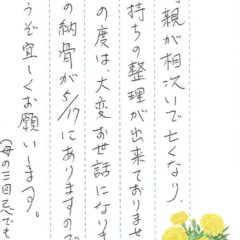 親が相次いで亡くなり、
持ちの整理が出来ておりませ
の度は、大変お世話になりま
の納骨が5/17にありますので
うぞ宜しくお願いします。
(母の三回忌でも